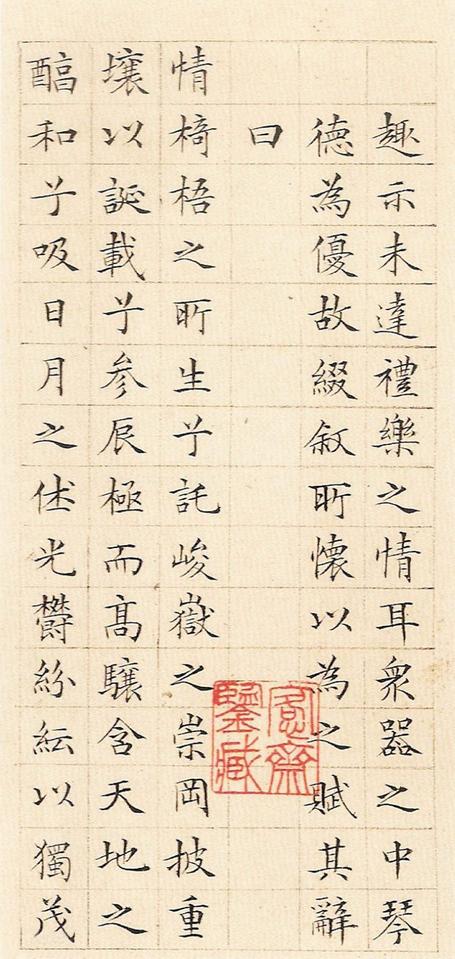 趣示未達禮樂之情耳衆器之中琴
德為優故綴敘所懷以為之賦其辭
曰
情椅梧之所生兮託峻嶽之崇岡披重
壤以誕載兮參辰極而髙驤含天地之
醕和兮吸日月之休光欝紛紜以獨茂
齋
鑒藏